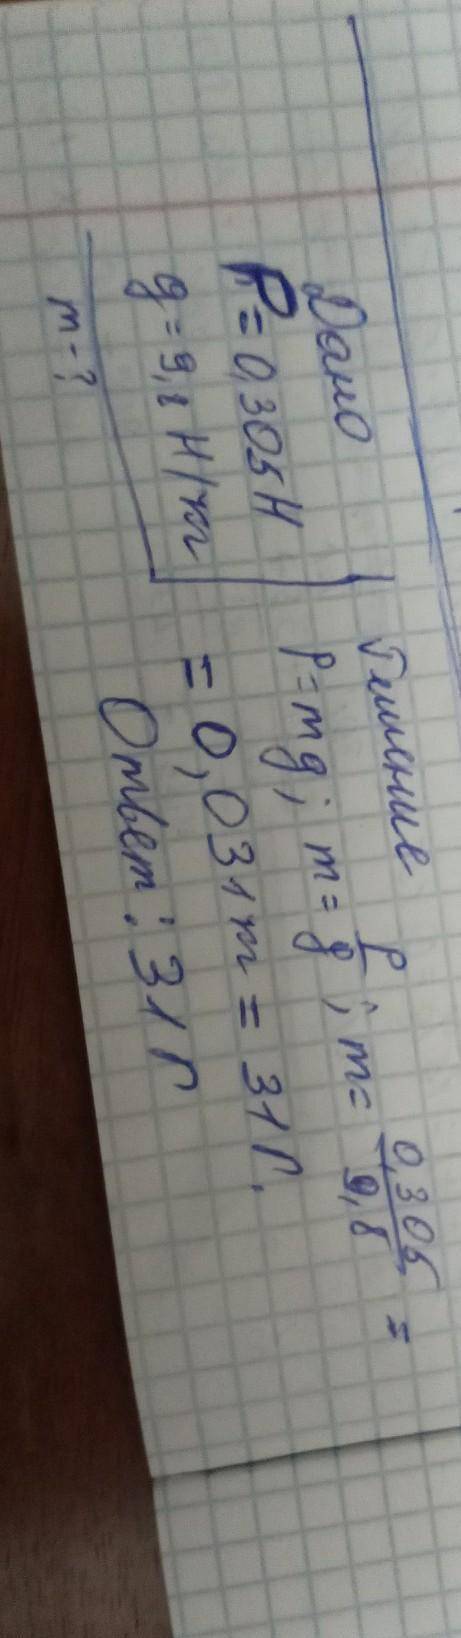 Дано
P = 0,305 Н
g = 9,8 Н/m
m - ?
Решение
P = mg; m = P/g; m = 0,305/9,8 =
= 0,031 m = 31 г.
Ответ: 31 г